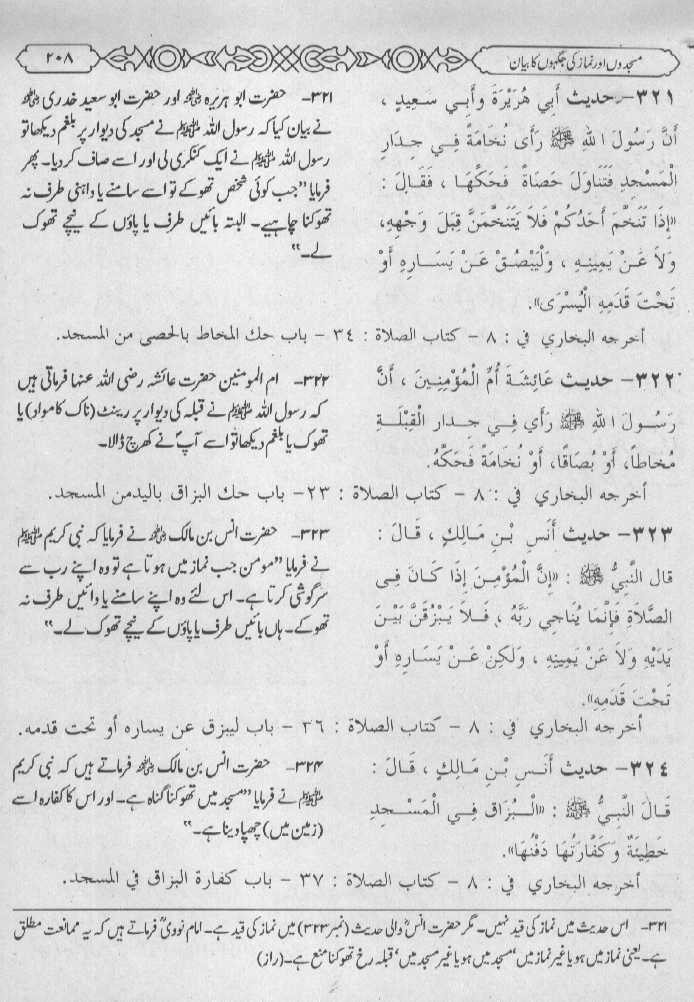 مسجدوں اور نماز کی جگہوں کا بیان
۲۰۸
۳۲۱- حدیث أَبِي هُرَيْرَةَ وَأَبِي سَعِيدٍ ،
أَنَّ رَسُولَ اللهِ ﷺ رَأَى نُخَامَةً فِي جِدَارِ
الْمَسْجِدِ فَتَنَاوَلَ حَصَاةً فَحَكَّهَا ، فَقَالَ :
«إِذَا تَنَخَّمَ أَحَدُكُمْ فَلاَ يَتَنَخَّمَنَّ قِبَلَ وَجْهِهِ،
وَلاَ عَنْ يَمِينِهِ ، وَلْيَبْصُقْ عَنْ يَسَارِهِ أَوْ
تَحْتَ قَدَمِهِ الْيُسْرَى».
۳۲۱- حضرت ابو ہریرہ ؓ اور حضرت ابو سعید خدری ؓ
نے بیان کیا کہ رسول اللہ ﷺ نے مسجد کی دیوار پر بلغم دیکھا تو
رسول اللہ ﷺ نے ایک کنکری لی اور اسے صاف کر دیا۔ پھر
فرمایا ”جب کوئی شخص تھوکے تو اسے سامنے یا داہنی طرف نہ
تھوکنا چاہیے۔ البتہ بائیں طرف یا پاؤں کے نیچے تھوک
لے۔“
أخرجه البخاري في : ٨ - كتاب الصلاة : ٣٤ - باب حك المخاط بالحصى من المسجد.
۳۲۲- حدیث عَائِشَةَ أُمِّ الْمُؤْمِنِينَ ، أَنَّ
رَسُولَ اللهِ ﷺ رَأَى فِي جِدَارِ الْقِبْلَةِ
مُخَاطاً، أَوْ بُصَاقًا، أَوْ نُخَامَةً فَحَكَّهُ.
۳۲۲- ام المومنین حضرت عائشہ رضی اللہ عنہا فرماتی ہیں
کہ رسول اللہ ﷺ نے قبلہ کی دیوار پر رینٹ (ناک کا مواد) یا
تھوک یا بلغم دیکھا تو اسے آپؐ نے کھرچ ڈالا۔
أخرجه البخاري في : ٨ - كتاب الصلاة : ٢٣- باب حك البزاق باليدمن المسجد.
۳۲۳- حدیث أَنَسِ بْنِ مَالِكٍ ، قَالَ :
قال النَّبِيُّ ﷺ : «إِنَّ الْمُؤْمِنَ إِذَا كَانَ فِى
الصَّلاَةِ فَإِنَّمَا يُنَاجِي رَبَّهُ ، فَلاَ يَبْزُقَنَّ بَيْنَ
يَدَيْهِ وَلاَ عَنْ يَمِينِهِ ، وَلَكِنْ عَنْ يَسَارِهِ أَوْ
تَحْتَ قَدَمِهِ».
۳۲۳- حضرت انس بن مالک ؓ نے فرمایا کہ نبی کریم ﷺ
نے فرمایا ”مومن جب نماز میں ہوتا ہے تو وہ اپنے رب سے
سرگوشی کرتا ہے۔ اس لئے وہ اپنے سامنے یا دائیں طرف نہ
تھوکے۔ ہاں بائیں طرف یا پاؤں کے نیچے تھوک لے۔“
أخرجه البخاري في : ٨ - كتاب الصلاة : ٣٦ - باب ليبزق عن يساره أو تحت قدمه.
۳۲٤- حدیث أَنَسِ بْنِ مَالِكٍ ، قَالَ :
قَالَ النَّبِيُّ ﷺ : «الْبُزَاق فِي الْمَسْجِدِ
خَطِيئَةٌ وَكَفَّارَتُهَا دَفْنُهَا».
۳۲۴- حضرت انس بن مالک ؓ فرماتے ہیں کہ نبی کریم
ﷺ نے فرمایا ”مسجد میں تھوکنا گناہ ہے۔ اور اس کا کفارہ اسے
(زمین میں) چھپا دینا ہے۔“
أخرجه البخاري في : ٨ - كتاب الصلاة : ٣٧ - باب كفارة البزاق في المسجد.
۳۲۱- اس حدیث میں نماز کی قید نہیں۔ مگر حضرت انسؓ والی حدیث (نمبر ۳۲۳) میں نماز کی قید ہے۔ امام نوویؒ فرماتے ہیں کہ یہ ممانعت مطلق
ہے۔ یعنی نماز میں ہو یا غیر نماز میں‘ مسجد میں ہو یا غیر مسجد میں‘ قبلہ رخ تھوکنا منع ہے۔ (راز)